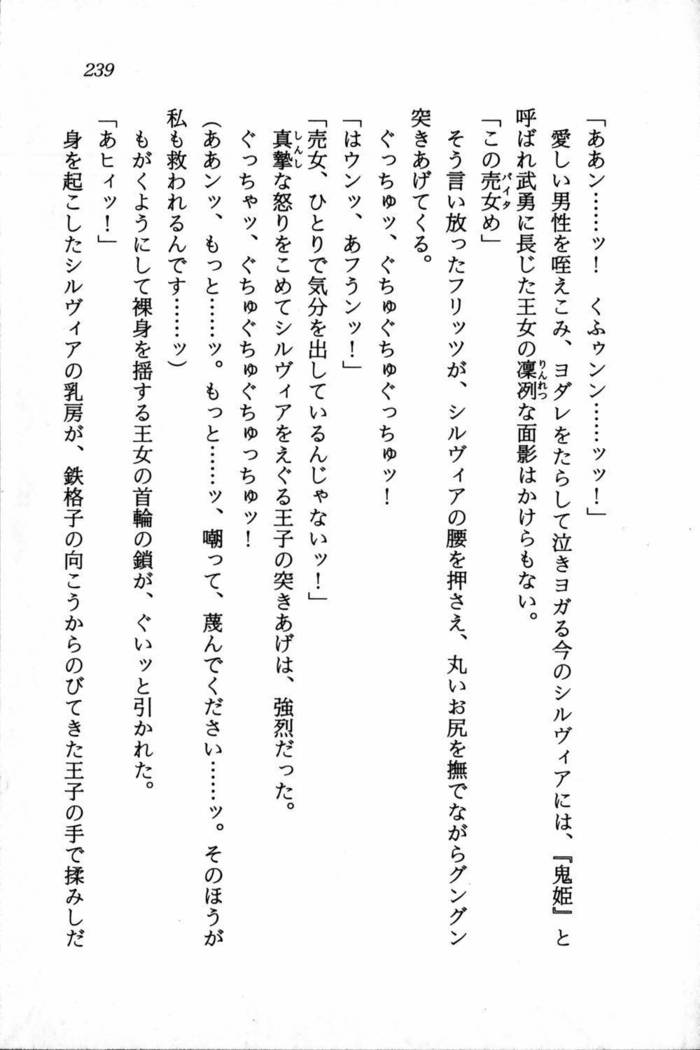 239
「ああン……ッ！　くふゥンン……ッッ！」
愛しい男性を咥えこみ、ヨダレをたらして泣きヨガる今のシルヴィアには、『鬼姫』と
りんれつ
呼ばれ武勇に長じた王女の凜冽な面影はかけらもない。
バイタ
「この売女め」
そう言い放ったフリッツが、シルヴィアの腰を押さえ、丸いお尻を撫でながらグングン
突きあげてくる。
ぐっちゅッ、ぐちゅぐちゅぐっちゅッ！
「はウンッ、あフうンッ！」
「売女、ひとりで気分を出しているんじゃないッ！」
しんし
真摯な怒りをこめてシルヴィアをえぐる王子の突きあげは、強烈だった。
ぐっちゃッ、ぐちゅぐちゅぐちゅっちゅッ！
（ああンッ、もっと……ッ。もっと……ッ、嘲って、蔑んでください……ッ。そのほうが
私も救われるんです……ッ）
もがくようにして裸身を揺する王女の首輪の鎖が、ぐいッと引かれた。
「あヒィッ！」
身を起こしたシルヴィアの乳房が、鉄格子の向こうからのびてきた王子の手で揉みしだ